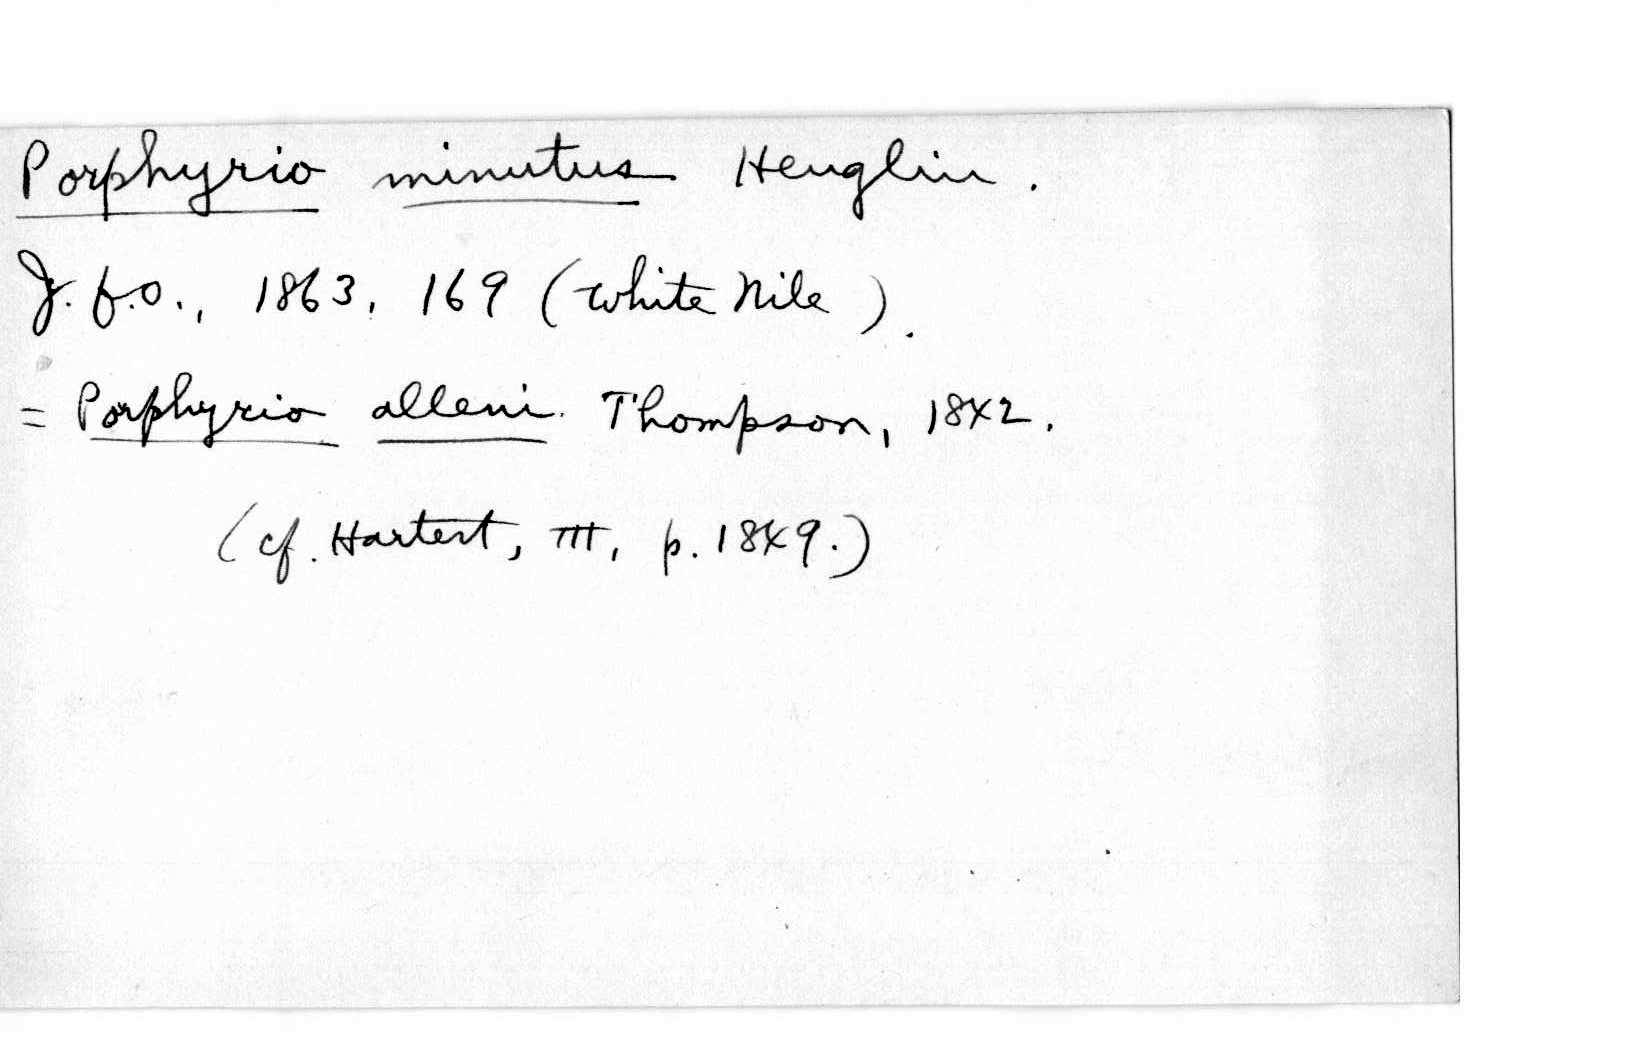 Porphyrio minutus Heuglin.
J. f. O., 1863, 169 (White Nile).
= Porphyrio alleni Thompson, 1842.
(cf. Hartert, III, p. 1849.)